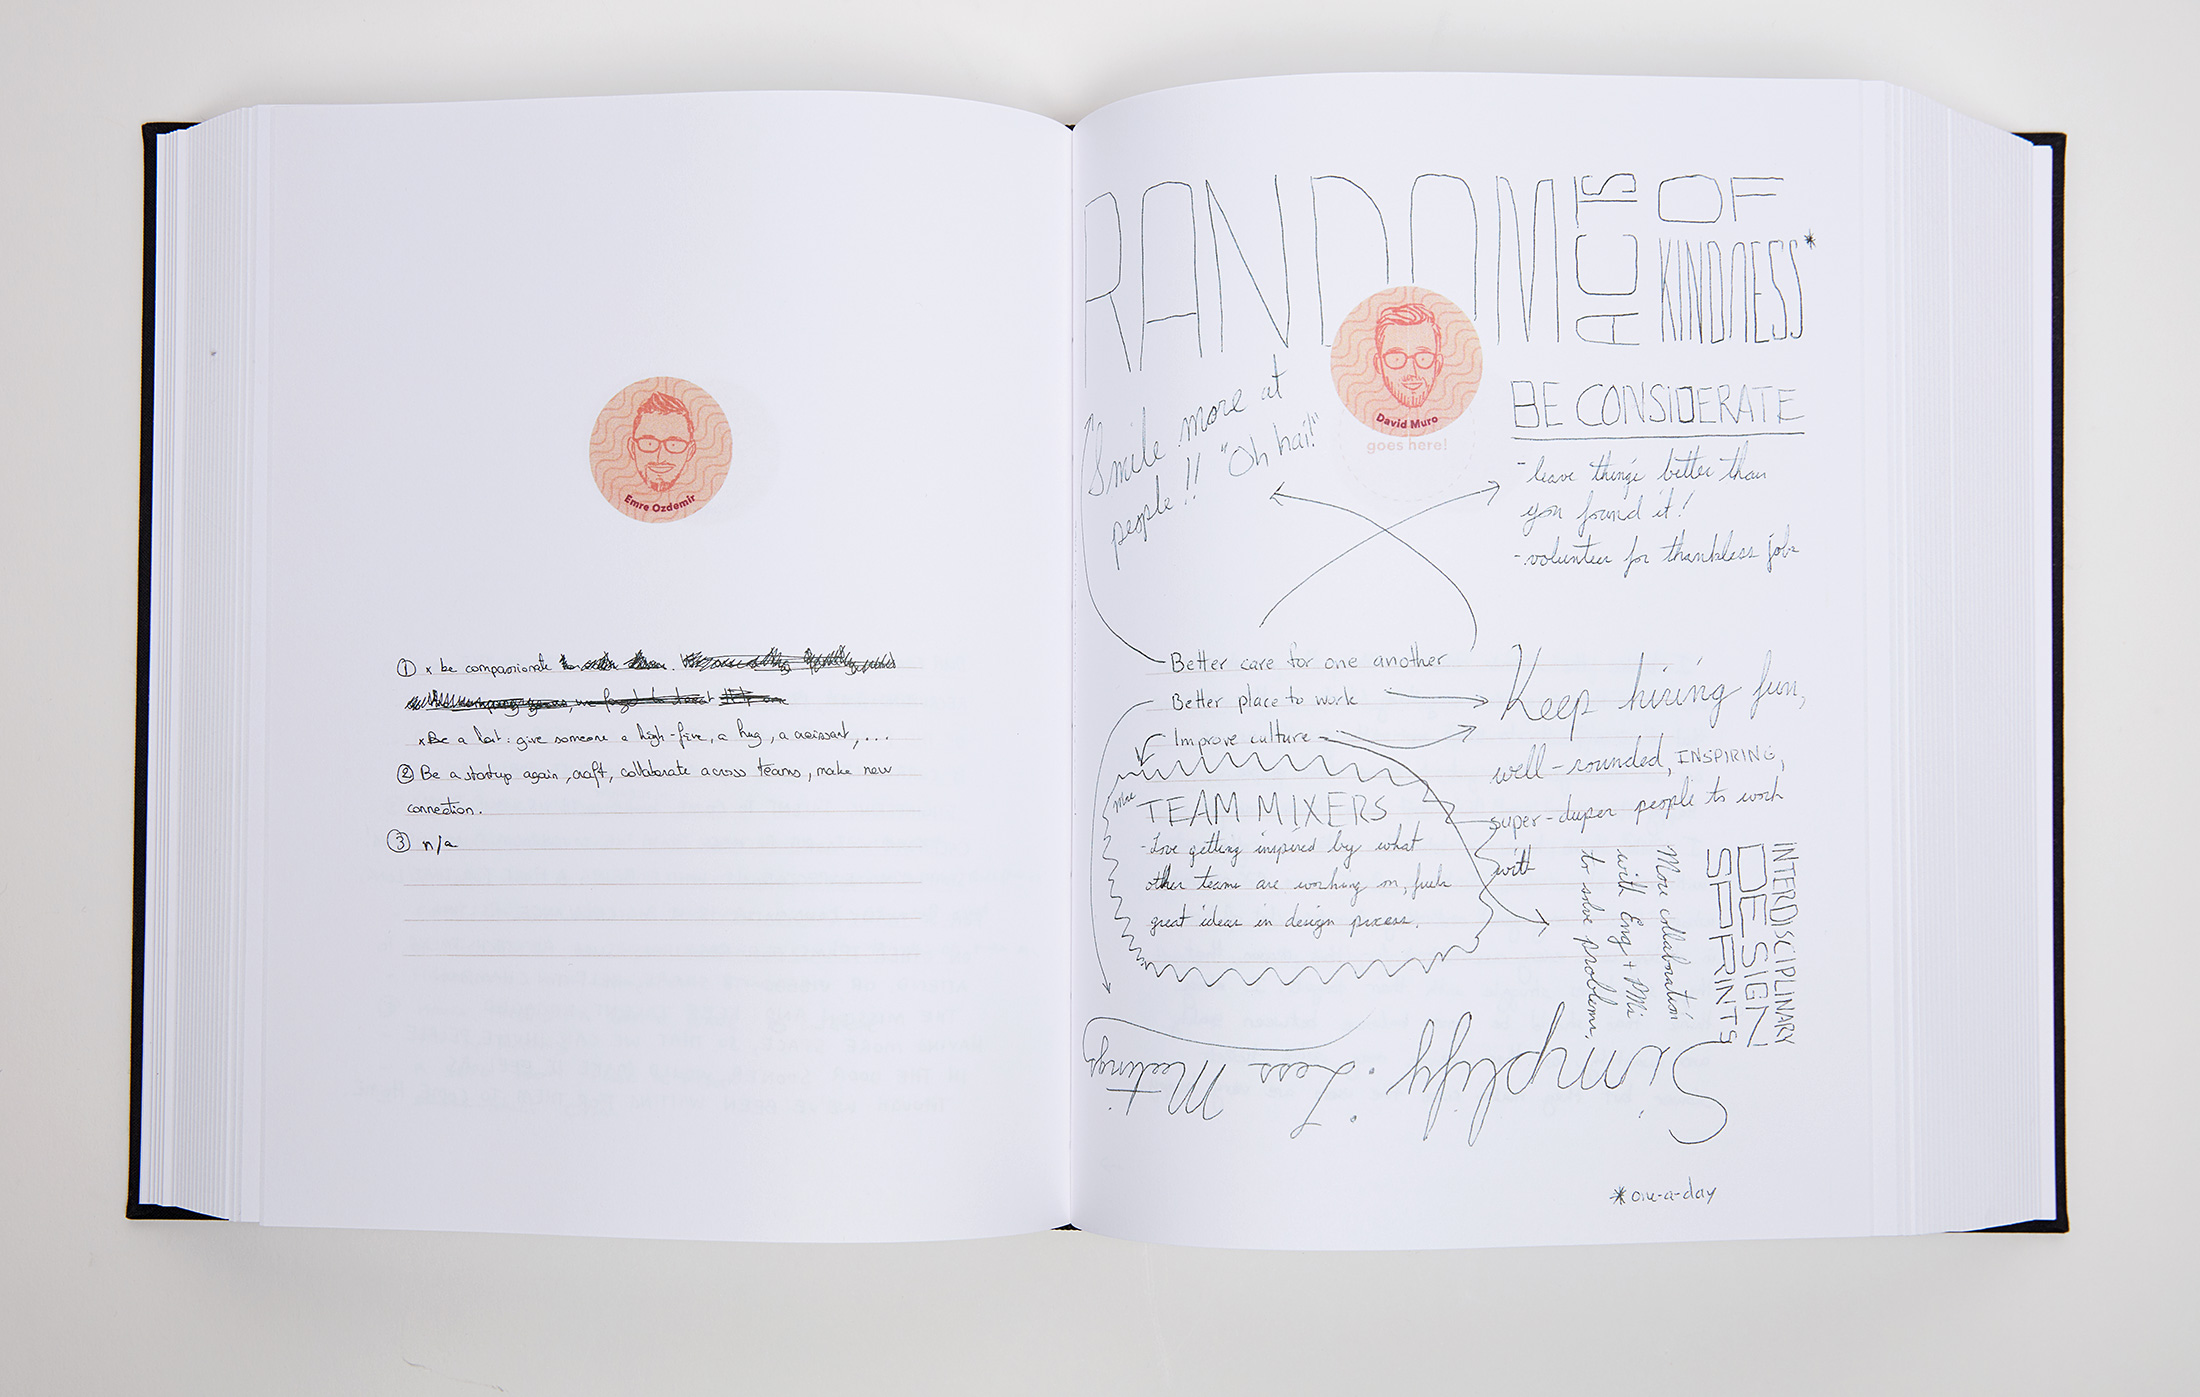 Emre Ozdemir
① x be compassionate
we forget to
x Be a : give someone a high-five, a hug, a croissant, ...
② Be a startup again, craft, collaborate across teams, make new
connection.
③ n/a
RANDOM ACTS OF KINDNESS*
David Muro
goes here!
Smile more at
people!! "Oh hai!"
BE CONSIDERATE
- leave things better than
you found it!
- volunteer for thankless jobs
Better care for one another
Better place to work
Improve culture
Keep hiring fun,
well-rounded, INSPIRING,
super-duper people to work
with
More TEAM MIXERS
- Love getting inspired by what
other teams are working on, fuels
great ideas in design process.
INTERDISCIPLINARY
DESIGN
SPRINTS
More collaboration
with Eng + PMs
to solve problems.
Simplify. Less Meetings
*one-a-day